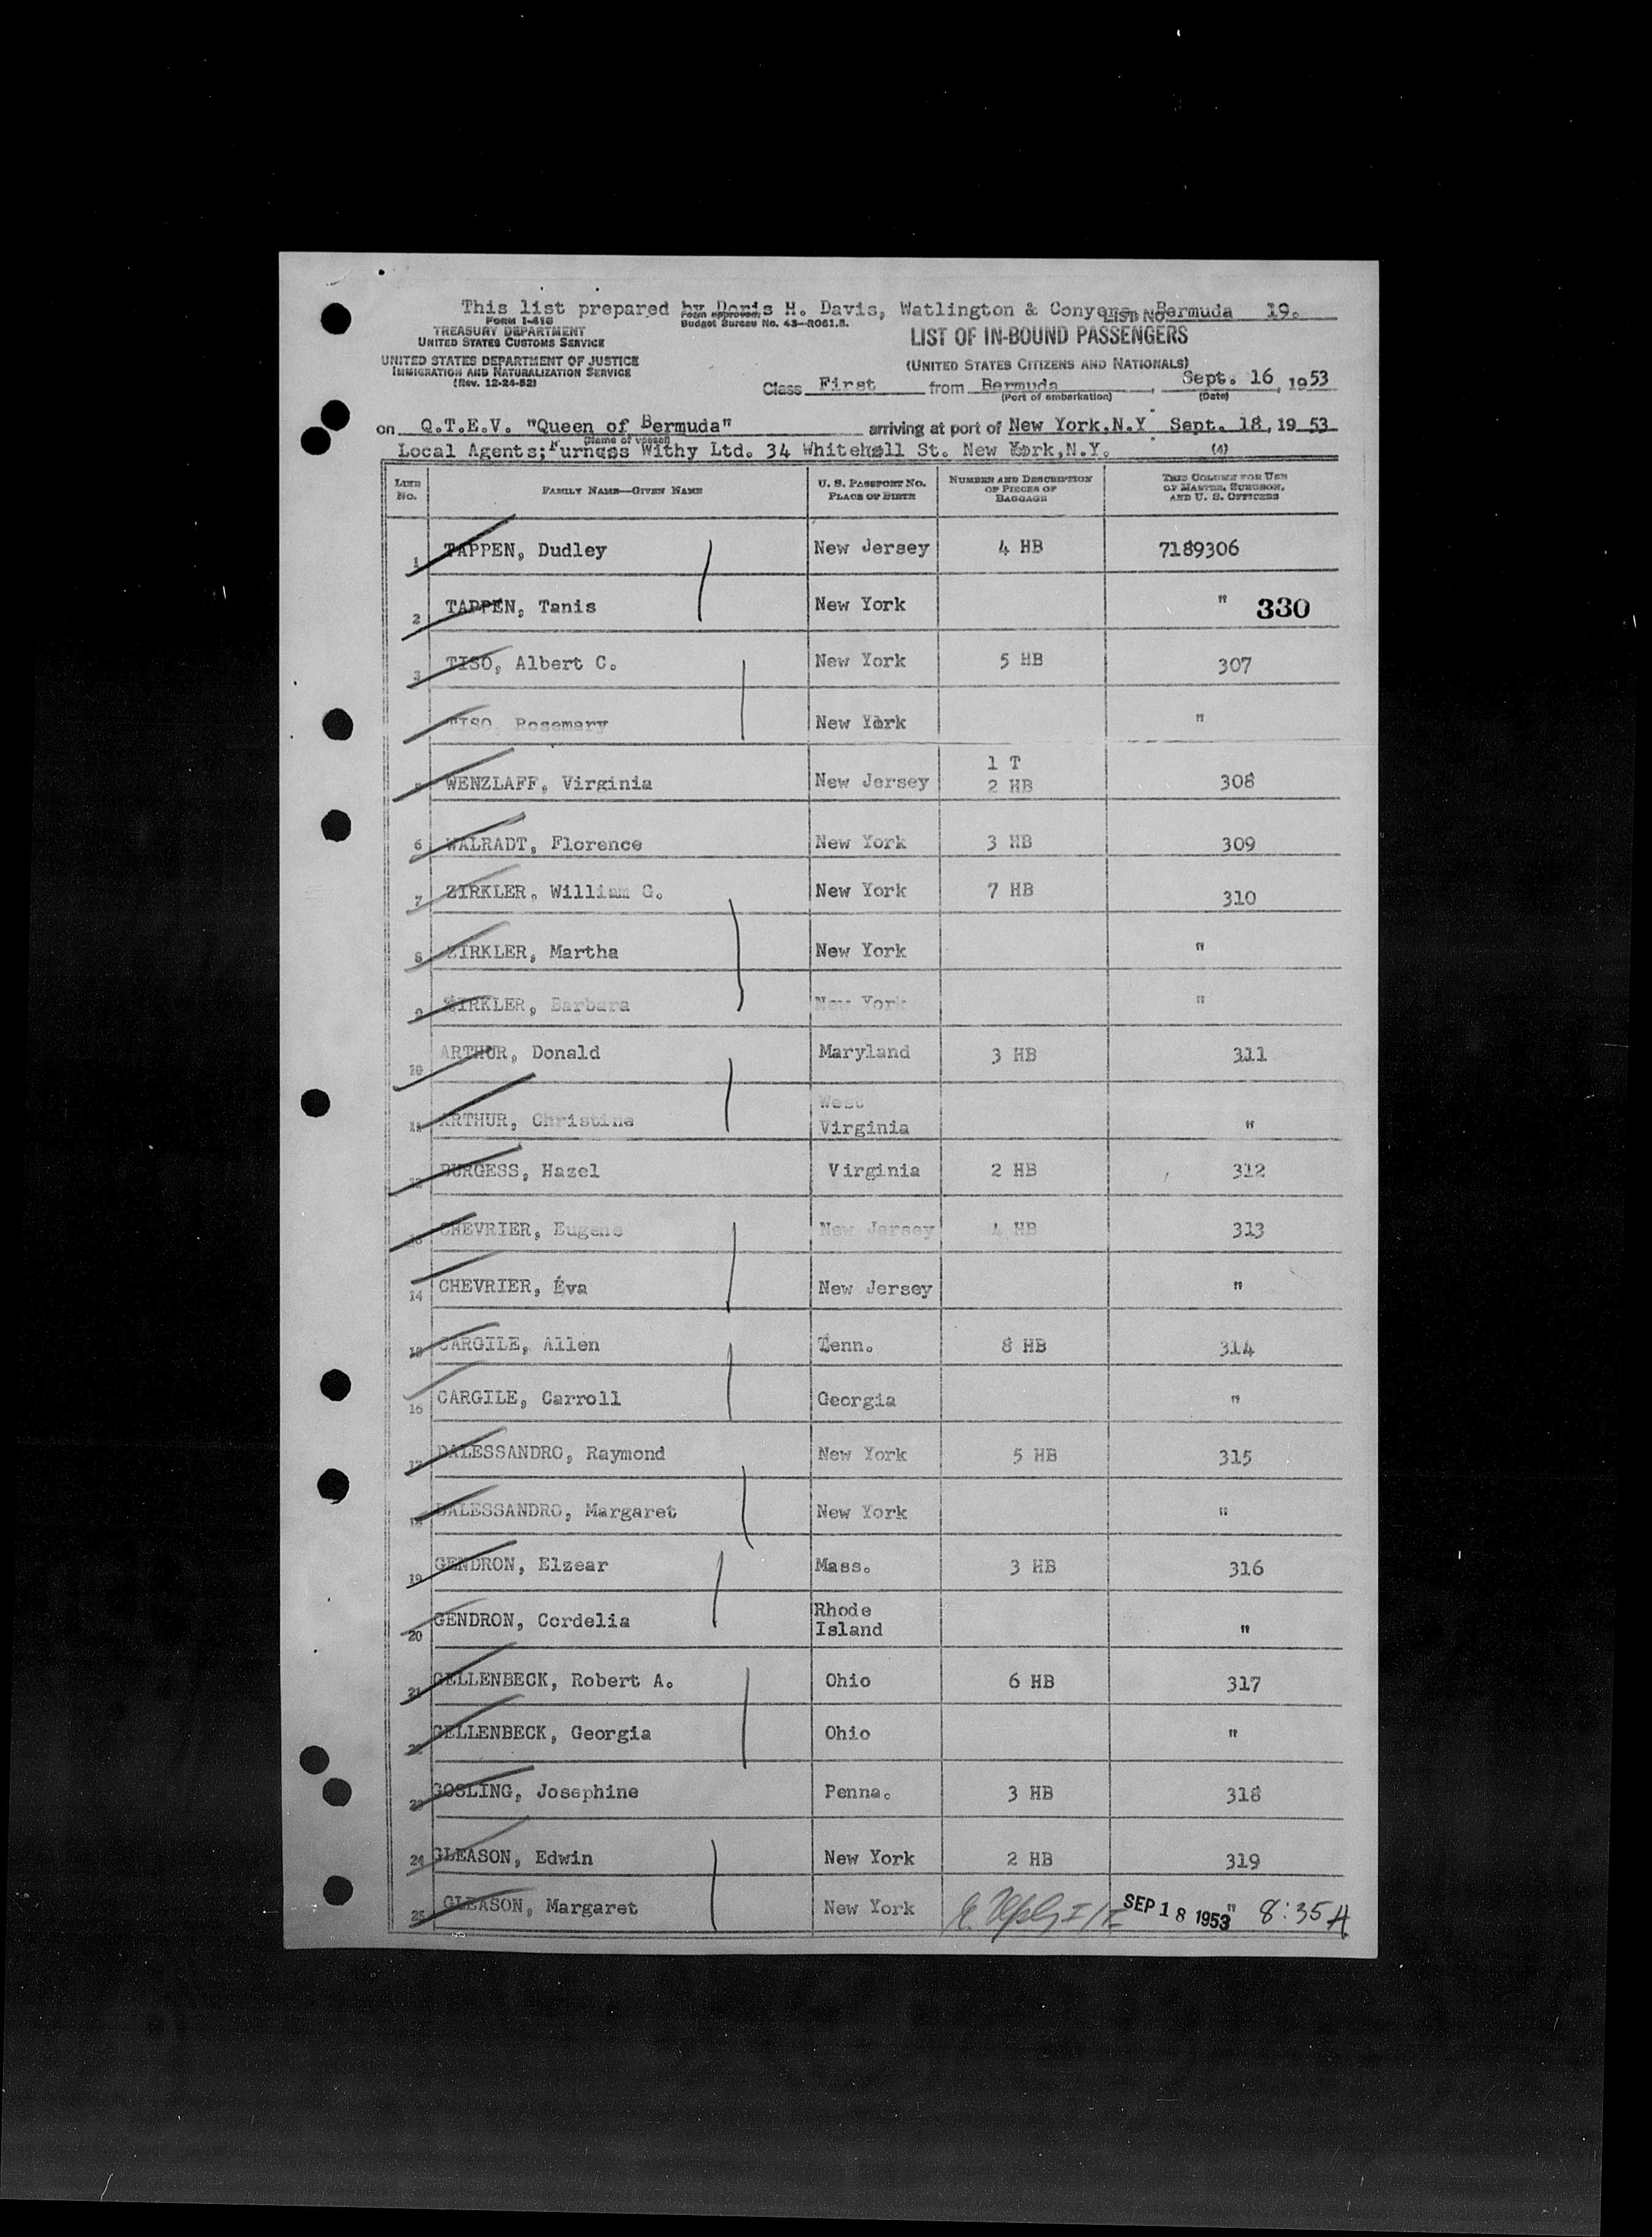 This list prepared by Doris H. Davis, Watlington & Conyers, Bermuda 19.
FORM I-418
TREASURY DEPARTMENT
UNITED STATES CUSTOMS SERVICE
UNITED STATES DEPARTMENT OF JUSTICE
IMMIGRATION AND NATURALIZATION SERVICE
(Rev. 12-24-52)
Form approved.
Budget Bureau No. 43-R061.5.
LIST NO.
LIST OF IN-BOUND PASSENGERS
(UNITED STATES CITIZENS AND NATIONALS)
Class First from Bermuda, Sept. 16, 1953
(Port of embarkation) (Date)
on Q.T.E.V. "Queen of Bermuda" arriving at port of New York, N.Y Sept. 18, 1953
(Name of vessel)
Local Agents; Furness Withy Ltd. 34 Whitehall St. New York, N.Y. (4)
LINE NO. FAMILY NAME—GIVEN NAME U. S. PASSPORT NO. PLACE OF BIRTH NUMBER AND DESCRIPTION OF PIECES OF BAGGAGE THIS COLUMN FOR USE OF MASTER, SURGEON, AND U. S. OFFICERS
1 TAPPEN, Dudley New Jersey 4 HB 7189306
2 TAPPEN, Tanis New York " 330
3 TISO, Albert C. New York 5 HB 307
TISO, Rosemary New York "
5 WENZLAFF, Virginia New Jersey 1 T 2 HB 308
6 WALRADT, Florence New York 3 HB 309
7 ZIRKLER, William G. New York 7 HB 310
8 ZIRKLER, Martha New York "
9 ZIRKLER, Barbara New York "
10 ARTHUR, Donald Maryland 3 HB 311
11 ARTHUR, Christine West Virginia "
12 BURGESS, Hazel Virginia 2 HB 312
13 CHEVRIER, Eugene New Jersey 4 HB 313
14 CHEVRIER, Eva New Jersey "
15 CARGILE, Allen Tenn. 8 HB 314
16 CARGILE, Carroll Georgia "
17 DALESSANDRO, Raymond New York 5 HB 315
18 DALESSANDRO, Margaret New York "
19 GENDRON, Elzear Mass. 3 HB 316
20 GENDRON, Cordelia Rhode Island "
21 GELLENBECK, Robert A. Ohio 6 HB 317
22 GELLENBECK, Georgia Ohio "
23 GOSLING, Josephine Penna. 3 HB 318
24 GLEASON, Edwin New York 2 HB 319
25 GLEASON, Margaret New York SEP 18 1953 " 8:35 A